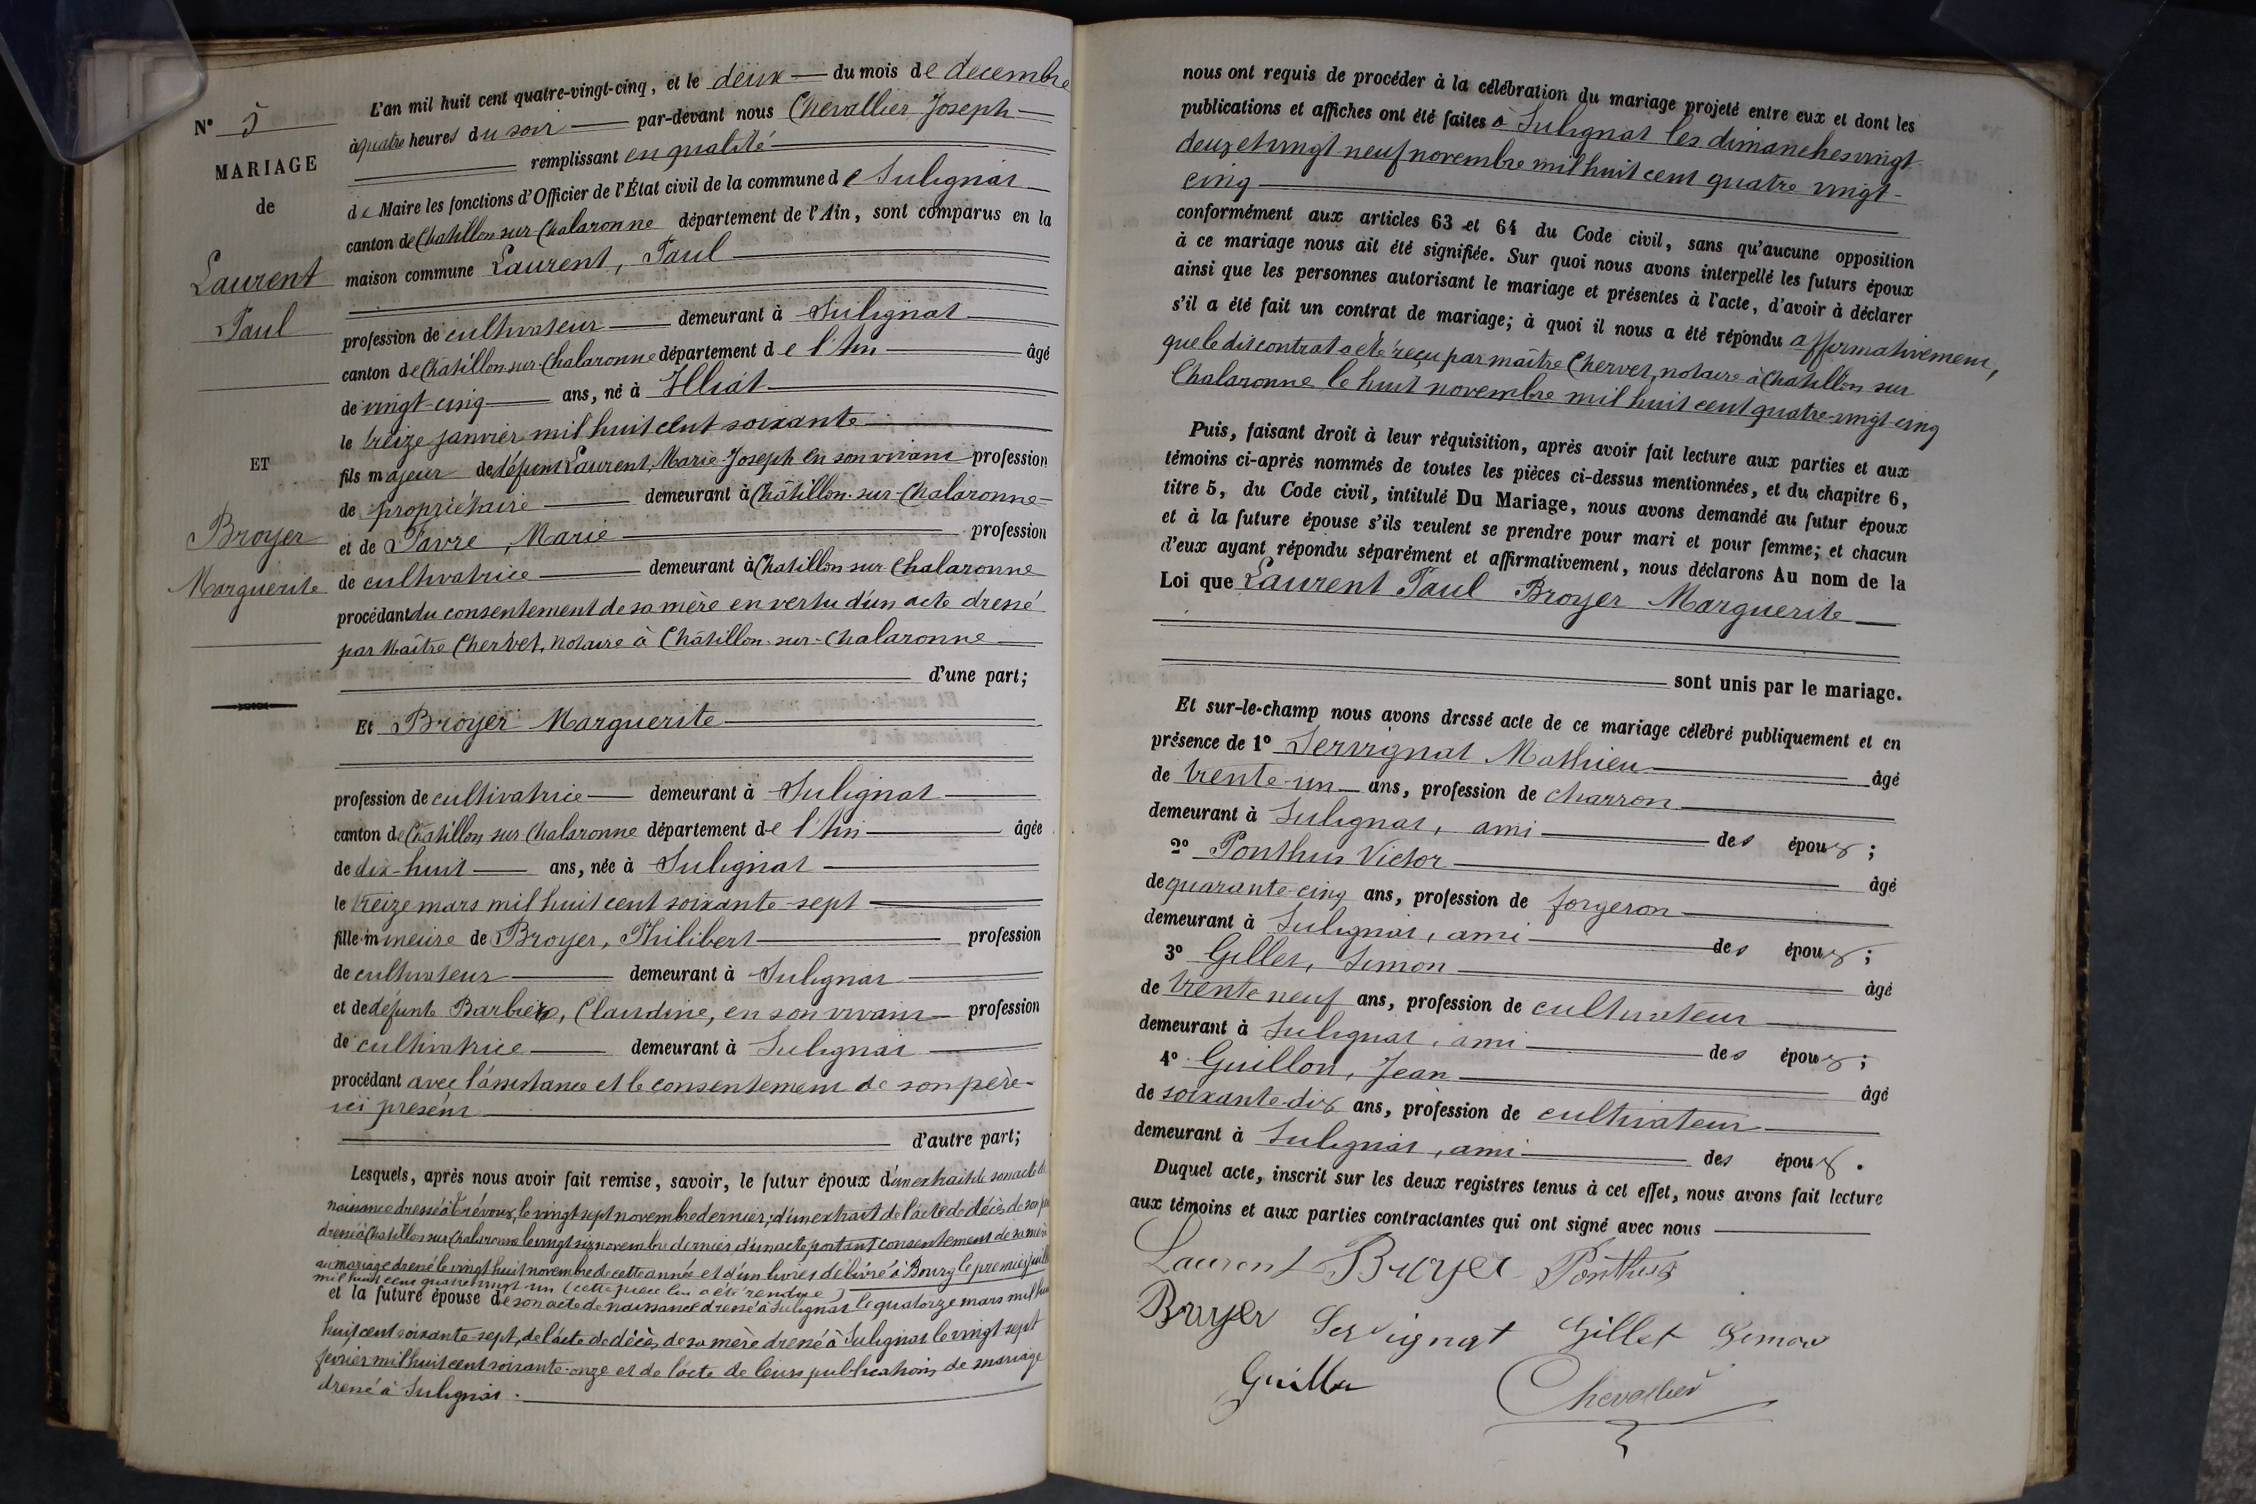 N° 5
MARIAGE
de
Laurent
Paul
ET
Broyer
Marguerite
L'an mil huit cent quatre-vingt-cinq, et le deux du mois de decembre
à quatre heures du soir par-devant nous Chevallier Joseph
remplissant en qualité
de Maire les fonctions d'Officier de l'État civil de la commune de Sulignat
canton de Chatillon sur Chalaronne département de l'Ain, sont comparus en la
maison commune Laurent, Paul
profession de cultivateur demeurant à Sulignat
canton de Châtillon sur Chalaronne département de l'Ain âgé
de vingt-cinq ans, né à Illiat
le treize janvier mil huit cent soixante
fils majeur de défunt Laurent, Marie-Joseph en son vivant profession
de propriétaire demeurant à Châtillon-sur-Chalaronne
et de Favre, Marie profession
de cultivatrice demeurant à Chatillon-sur-Chalaronne
procédant du consentement de sa mère en vertu d'un acte dressé
par Maître Chervet, notaire à Châtillon-sur-Chalaronne
d'une part;
Et Broyer Marguerite
profession de cultivatrice demeurant à Sulignat
canton de Châtillon sur Chalaronne département de l'Ain âgée
de dix-huit ans, née à Sulignat
le treize mars mil huit cent soixante-sept
fille mineure de Broyer, Philibert profession
de cultivateur demeurant à Sulignat
et de défunte Barbier, Claudine, en son vivant profession
de cultivatrice demeurant à Sulignat
procédant avec l'assistance et le consentement de son père
ici présent
d'autre part;
Lesquels, après nous avoir fait remise, savoir, le futur époux d'un extrait de son acte de
naissance dressé à Trévoux, le vingt sept novembre dernier; d'un extrait de l'acte de décès de son
dressé à Chatillon sur Chalaronne le vingt six novembre dernier d'un acte portant consentement de sa mère
au mariage dressé le vingt huit novembre de cette année et d'un livret délivré à Bourg le premier juillet
mil huit cent quatre vingt-un (cette pièce lui a été rendue)
et la future épouse de son acte de naissance dressé à Sulignat le quatorze mars mil
huit cent soixante-sept, de l'acte de décès de sa mère dressé à Sulignat le vingt sept
février mil huit cent soixante-onze et de l'acte de leurs publications de mariage
dressé à Sulignat.
nous ont requis de procéder à la célébration du mariage projeté entre eux et dont les
publications et affiches ont été faites à Sulignat les dimanches vingt
deux et vingt neuf novembre mil huit cent quatre vingt-
cinq
conformément aux articles 63 et 64 du Code civil, sans qu'aucune opposition
à ce mariage nous ait été signifiée. Sur quoi nous avons interpellé les futurs époux
ainsi que les personnes autorisant le mariage et présentes à l'acte, d'avoir à déclarer
s'il a été fait un contrat de mariage; à quoi il nous a été répondu affirmativement,
que le dit contrat a été reçu par maître Chervet, notaire à Chatillon sur
Chalaronne le huit novembre mil huit cent quatre-vingt-cinq
Puis, faisant droit à leur réquisition, après avoir fait lecture aux parties et aux
témoins ci-après nommés de toutes les pièces ci-dessus mentionnées, et du chapitre 6,
titre 5, du Code civil, intitulé Du Mariage, nous avons demandé au futur époux
et à la future épouse s'ils veulent se prendre pour mari et pour femme; et chacun
d'eux ayant répondu séparément et affirmativement, nous déclarons Au nom de la
Loi que Laurent Paul Broyer Marguerite
sont unis par le mariage.
Et sur-le-champ nous avons dressé acte de ce mariage célébré publiquement et en
présence de 1° Servignat Mathieu âgé
de trente-un ans, profession de charron
demeurant à Sulignat, ami des époux;
2° Ponthus Victor âgé
de quarante-cinq ans, profession de forgeron
demeurant à Sulignat, ami des époux;
3° Gillet, Simon âgé
de trente neuf ans, profession de cultivateur
demeurant à Sulignat, ami des époux;
4° Guillon, Jean âgé
de soixante-dix ans, profession de cultivateur
demeurant à Sulignat, ami des époux.
Duquel acte, inscrit sur les deux registres tenus à cet effet, nous avons fait lecture
aux témoins et aux parties contractantes qui ont signé avec nous
Laurent Broyer Ponthus
Broyer Servignat Gillet Simon
Guillon Chevallier